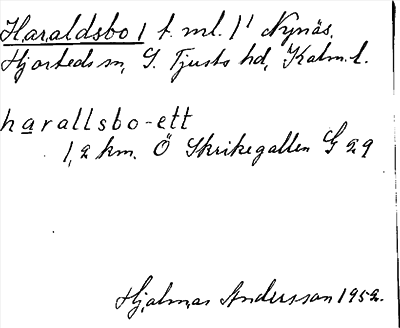 Haraldsbo 1 t. ml. 1¹ Nynäs,
Hjorteds sn, S. Tjusts hd, Kalm. l.
harallsbo-ett
1,2 km. Ö Skrikegallen G 29
Hjalmar Andersson 1952.